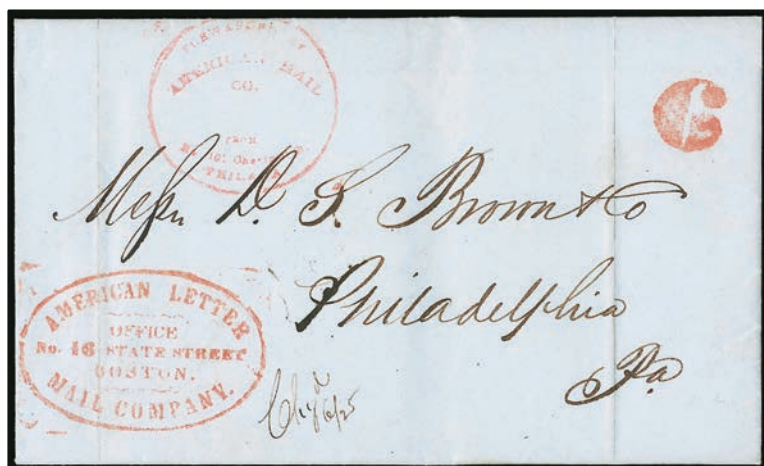 FORWARDED BY
AMERICAN MAIL
CO.
FROM
No. 101
PHILADA
Messrs D. S. Brown & Co
Philadelphia
Pa
AMERICAN LETTER
OFFICE
No. 16 STATE STREET
BOSTON.
MAIL COMPANY.
Chgd
6/25